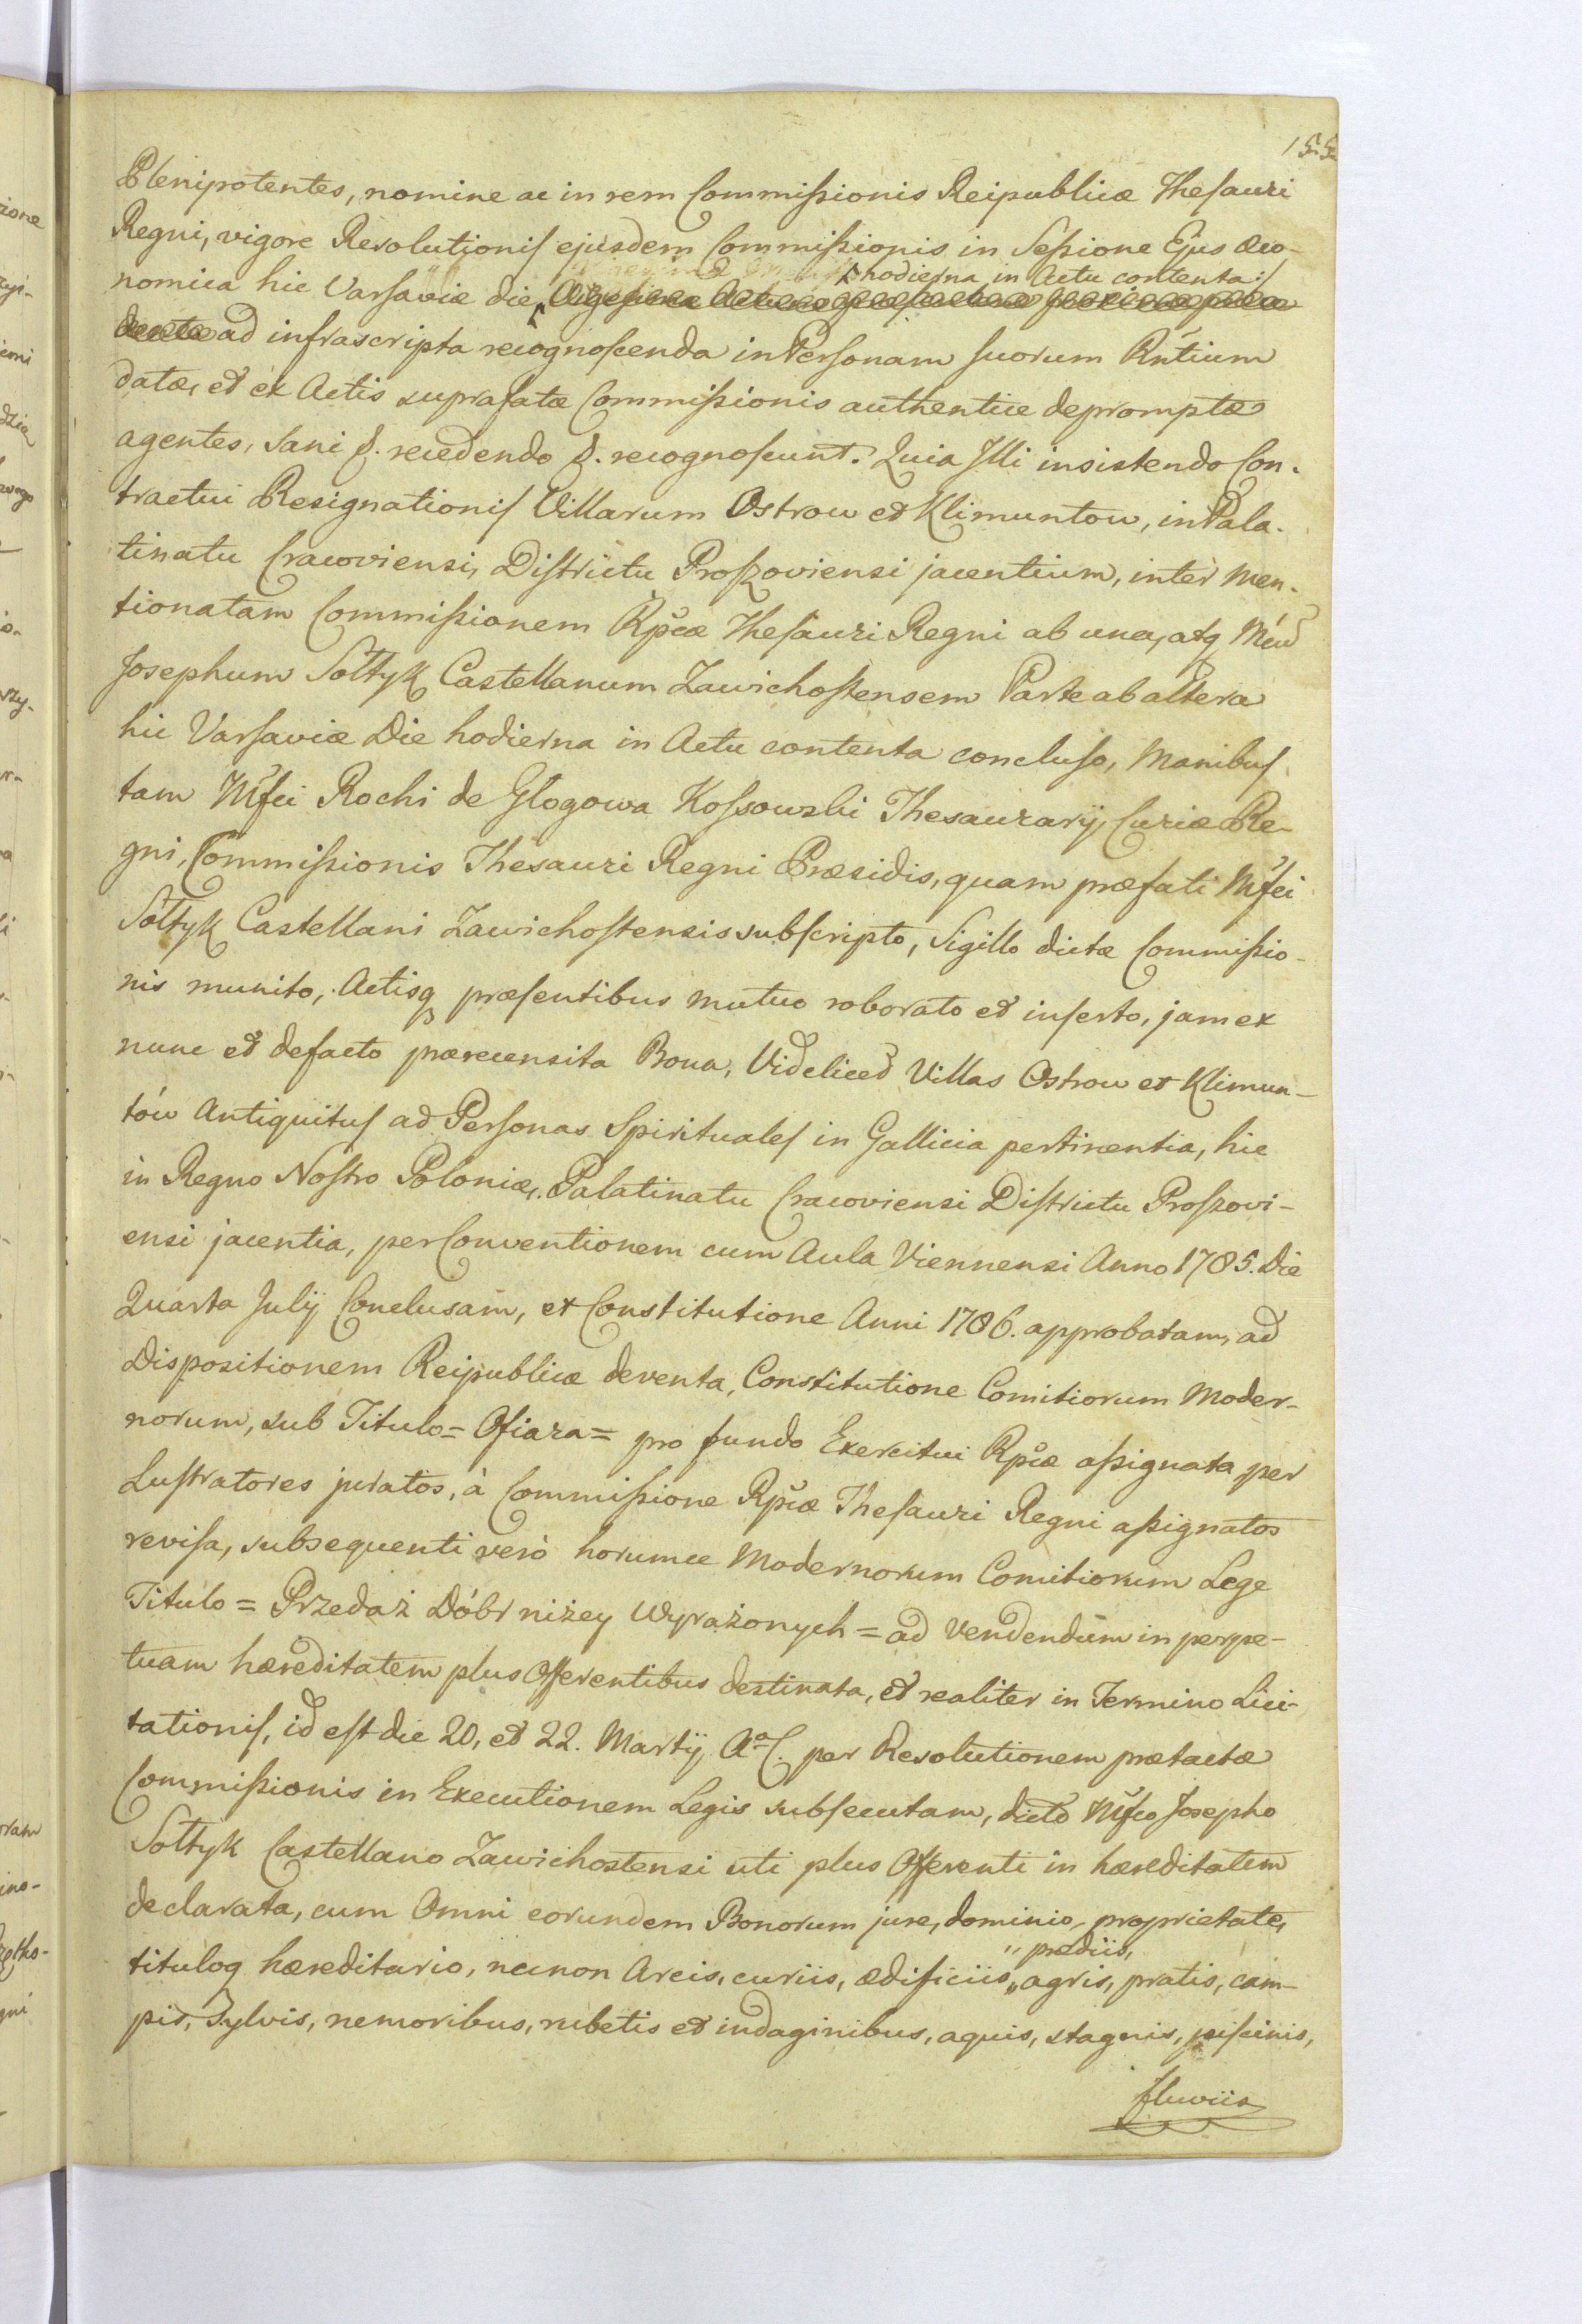 155.
Plenipotentes, nomine ac in rem Commissionis Reipublicæ Thesauri
Regni, vigore Resolutionis ejusdem Commissionis in Sessione Ejus œco-
hodierna in Actu contenta:/
nomica hic Varsaviæ die Vigesima
ad infrascripta recognoscenda in Personam suorum Rñtium
datæ, et ex Actis suprafatæ Commissionis authentice depromptæ
agentes, sani &. recedendo &. recognoscunt. Quia Illi insistendo Con-
tractui Resignationis Villarum Ostrow et Klimuntow, in Pala-
tinatu Cracoviensi, Districtu Proszoviensi jacentium, inter Men-
tionatam Commissionem Rpcæ Thesauri Regni ab una, atq
Josephum Sołtyk Castellanum Zawichostensem Parte ab altera
hic Varsaviæ Die hodierna in Actu contenta concluso, Manibus
tam Mfci Rochi de Głogowa Kossowski Thesaurarij Curiæ Re-
gni, Commissionis Thesauri Regni Præsidis, quam præfati Mfci
Sołtyk Castellani Zawichostensis subscripto, Sigillo dictæ Commissio-
nis munito, Actisq præsentibus mutuo roborato et inserto, jam ex
nunc et defacto præcensita Bona, Videlicet Villas Ostrow et Klimun-
tów Antiquitus ad Personas Spirituales in Gallicia pertinentia, hic
in Regno Nostro Poloniæ, Palatinatu Cracoviensi Districtu Proszovi-
ensi jacentia, per Conventionem cum Aula Viennensi Anno 1785. Die
Quarta Julij Conclusam, et Constitutione Anni 1786. approbatam, ad
Dispositionem Reipublicæ deventa, Constitutione Comitiorum Moder-
norum, sub Titulo = Ofiara = pro fundo Exercitui Rpcæ assignata per
Lustratores juratos, à Commissione Rpcæ Thesauri Regni assignatos
revisa, subsequenti verò horumce Modernorum Comitiorum Lege
Titulo = Przedaż Dóbr niżey Wyrażonych = ad Vendendum in perpe-
tuam hæreditatem plus Offerentibus destinata, et realiter in Termino Lici-
tationis, id est die 20, et 22. Martij A° C. per Resolutionem prætactæ
Commissionis in Executionem Legis subsecutam, dicto Mfco Josepho
Sołtyk Castellano Zawichostensi uti plus Offerenti in hæreditatem
declarata, cum Omni eorundem Bonorum jure, dominio, proprietate,
" prædiis,
tituloq hæreditario, necnon Arcis, curiis, ædificiis, " agris, pratis, cam-
pis, Sylvis, nemoribus, rubetis et indaginibus, aquis, stagnis, piscinis,
fluviis